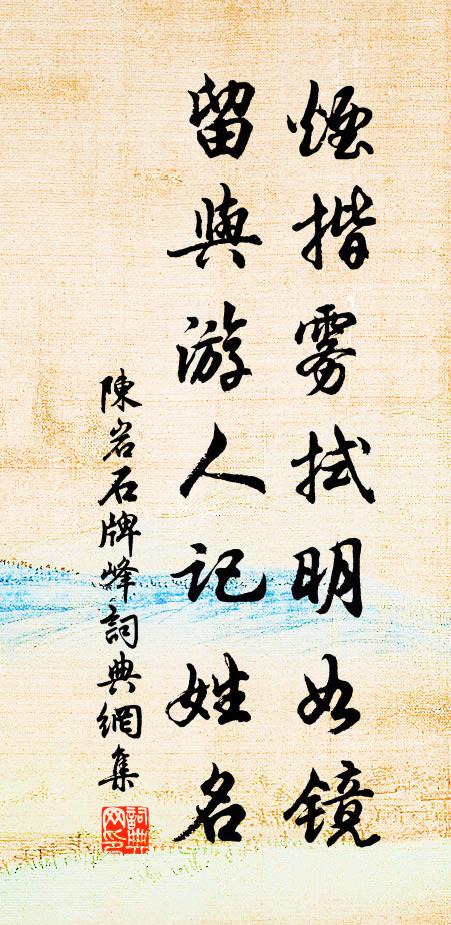 煙揩雾拭明如镜
留與游人记姓名
陳岩石牌峰詞典網集
詞典网印